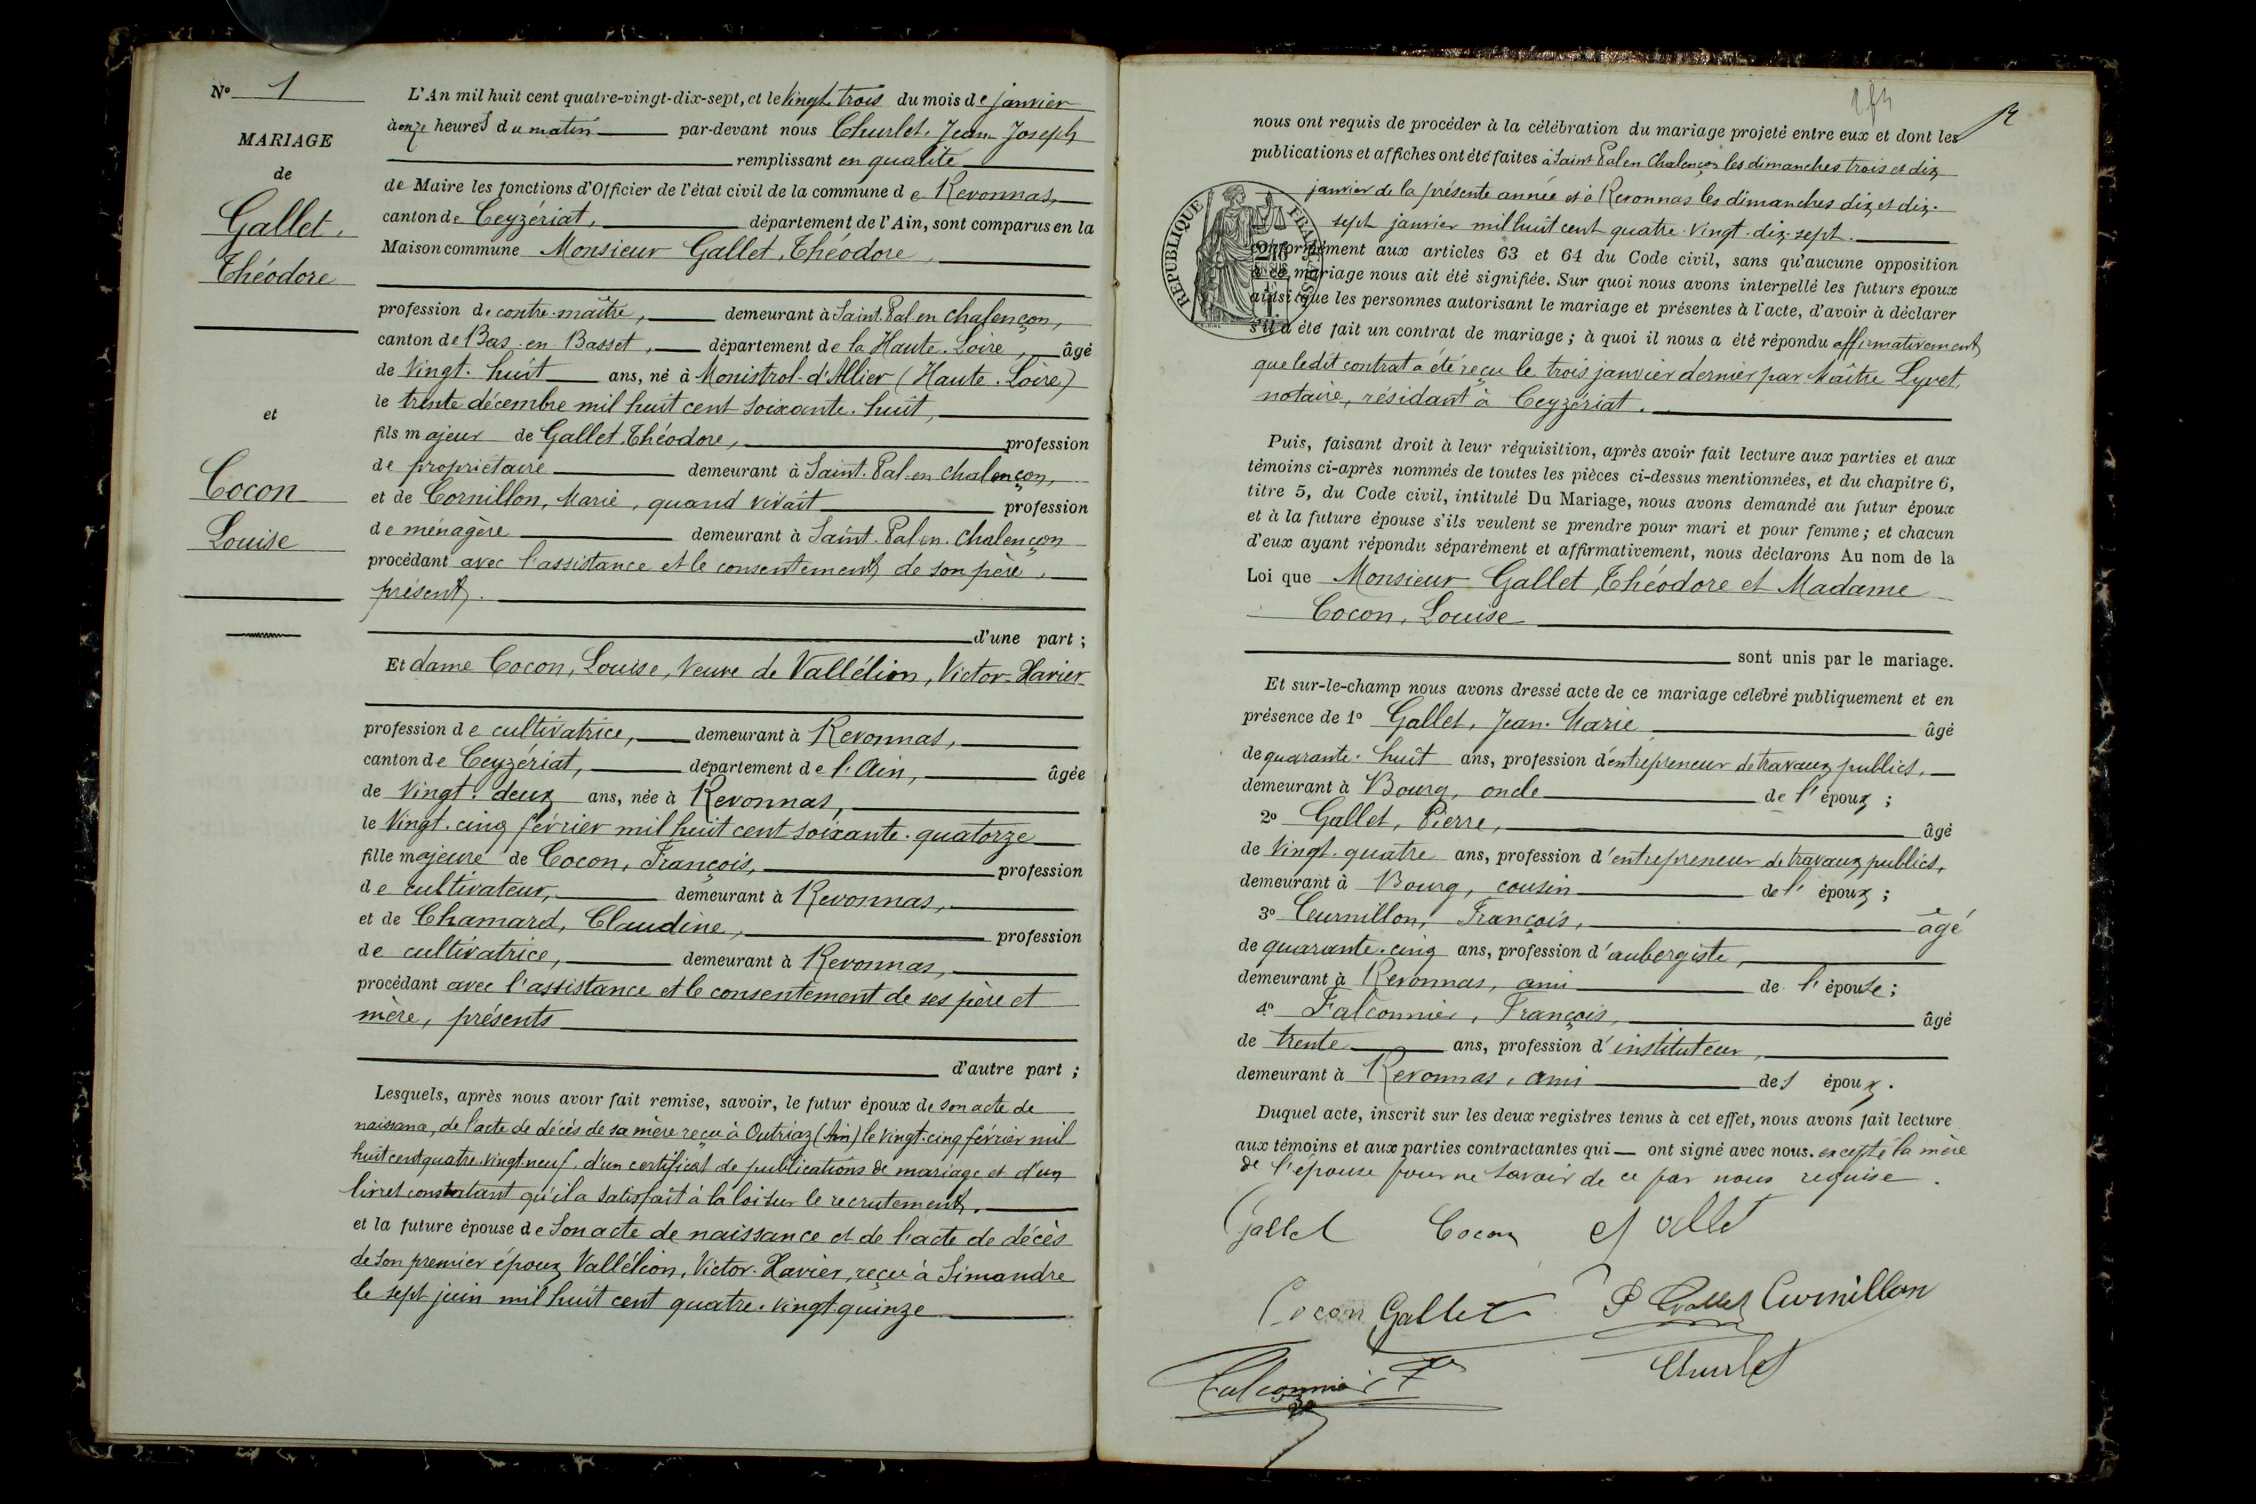 N° 1
MARIAGE
de
Gallet,
Théodore
et
Cocon
Louise
L'An mil huit cent quatre-vingt-dix-sept, et le vingt trois du mois de janvier
à onze heures du matin par-devant nous Churlet, Jean Joseph
remplissant en qualité
de Maire les fonctions d'Officier de l'état civil de la commune de Revonnas,
canton de Ceyzériat, département de l'Ain, sont comparus en la
Maison commune Monsieur Gallet, Théodore,
profession de contre-maître, demeurant à Saint Pal en chalençon,
canton de Bas-en-Basset, département de la Haute-Loire, âgé
de vingt-huit ans, né à Monistrol-d'Allier (Haute-Loire)
le trente décembre mil huit cent soixante-huit,
fils majeur de Gallet, Théodore, profession
de propriétaire demeurant à Saint-Pal-en chalençon,
et de Cornillon, Marie, quand vivait profession
de ménagère demeurant à Saint-Pal en chalençon
procédant avec l'assistance et le consentement de son père,
présent.
d'une part ;
Et dame Cocon, Louise, veuve de Vallélion, Victor-Xavier
profession de cultivatrice, demeurant à Revonnas,
canton de Ceyzériat, département de l'Ain, âgée
de vingt-deux ans, née à Revonnas,
le vingt-cinq février mil huit cent soixante-quatorze
fille majeure de Cocon, François, profession
de cultivateur, demeurant à Revonnas,
et de Chamard, Claudine, profession
de cultivatrice, demeurant à Revonnas,
procédant avec l'assistance et le consentement de ses père et
mère, présents
d'autre part ;
Lesquels, après nous avoir fait remise, savoir, le futur époux de son acte de
naissance, de l'acte de décès de sa mère reçu à Outriaz (Ain) le vingt-cinq février mil
huit cent quatre-vingt neuf, d'un certificat de publications de mariage et d'un
livret constatant qu'il a satisfait à la loi sur le recrutement,
et la future épouse de son acte de naissance et de l'acte de décès
de son premier époux Vallélion, Victor-Xavier, reçu à Simandre
le sept juin mil huit cent quatre-vingt quinze
2
nous ont requis de procéder à la célébration du mariage projeté entre eux et dont les
publications et affiches ont été faites à Saint Pal en Chalençon les dimanches trois et dix
janvier de la présente année et à Revonnas les dimanches dix et dix-
sept janvier mil huit cent quatre-vingt-dix-sept.
RÉPUBLIQUE FRANÇAISE
conformément aux articles 63 et 64 du Code civil, sans qu'aucune opposition
à ce mariage nous ait été signifiée. Sur quoi nous avons interpellé les futurs époux
ainsi que les personnes autorisant le mariage et présentes à l'acte, d'avoir à déclarer
s'il a été fait un contrat de mariage ; à quoi il nous a été répondu affirmativement
que ledit contrat a été reçu le trois janvier dernier par Maître Lyvet,
notaire, résidant à Ceyzériat.
Puis, faisant droit à leur réquisition, après avoir fait lecture aux parties et aux
témoins ci-après nommés de toutes les pièces ci-dessus mentionnées, et du chapitre 6,
titre 5, du Code civil, intitulé Du Mariage, nous avons demandé au futur époux
et à la future épouse s'ils veulent se prendre pour mari et pour femme ; et chacun
d'eux ayant répondu séparément et affirmativement, nous déclarons Au nom de la
Loi que Monsieur Gallet, Théodore et Madame
Cocon, Louise
sont unis par le mariage.
Et sur-le-champ nous avons dressé acte de ce mariage célébré publiquement et en
présence de 1° Gallet, Jean-Marie âgé
de quarante-huit ans, profession d'entrepreneur de travaux publics,
demeurant à Bourg, oncle de l'époux ;
2° Gallet, Pierre, âgé
de vingt-quatre ans, profession d'entrepreneur de travaux publics,
demeurant à Bourg, cousin de l'époux ;
3° Curnillon, François, âgé
de quarante-cinq ans, profession d'aubergiste,
demeurant à Revonnas, ami de l'épouse ;
4° Falconnier, François, âgé
de trente ans, profession d'instituteur,
demeurant à Revonnas, ami des époux.
Duquel acte, inscrit sur les deux registres tenus à cet effet, nous avons fait lecture
aux témoins et aux parties contractantes qui ont signé avec nous. excepté la mère
de l'épouse pour ne savoir de ce par nous requise.
Gallet Cocon Gallet
Cocon Gallet P Gallet Curnillon
Falconnier F Churlet